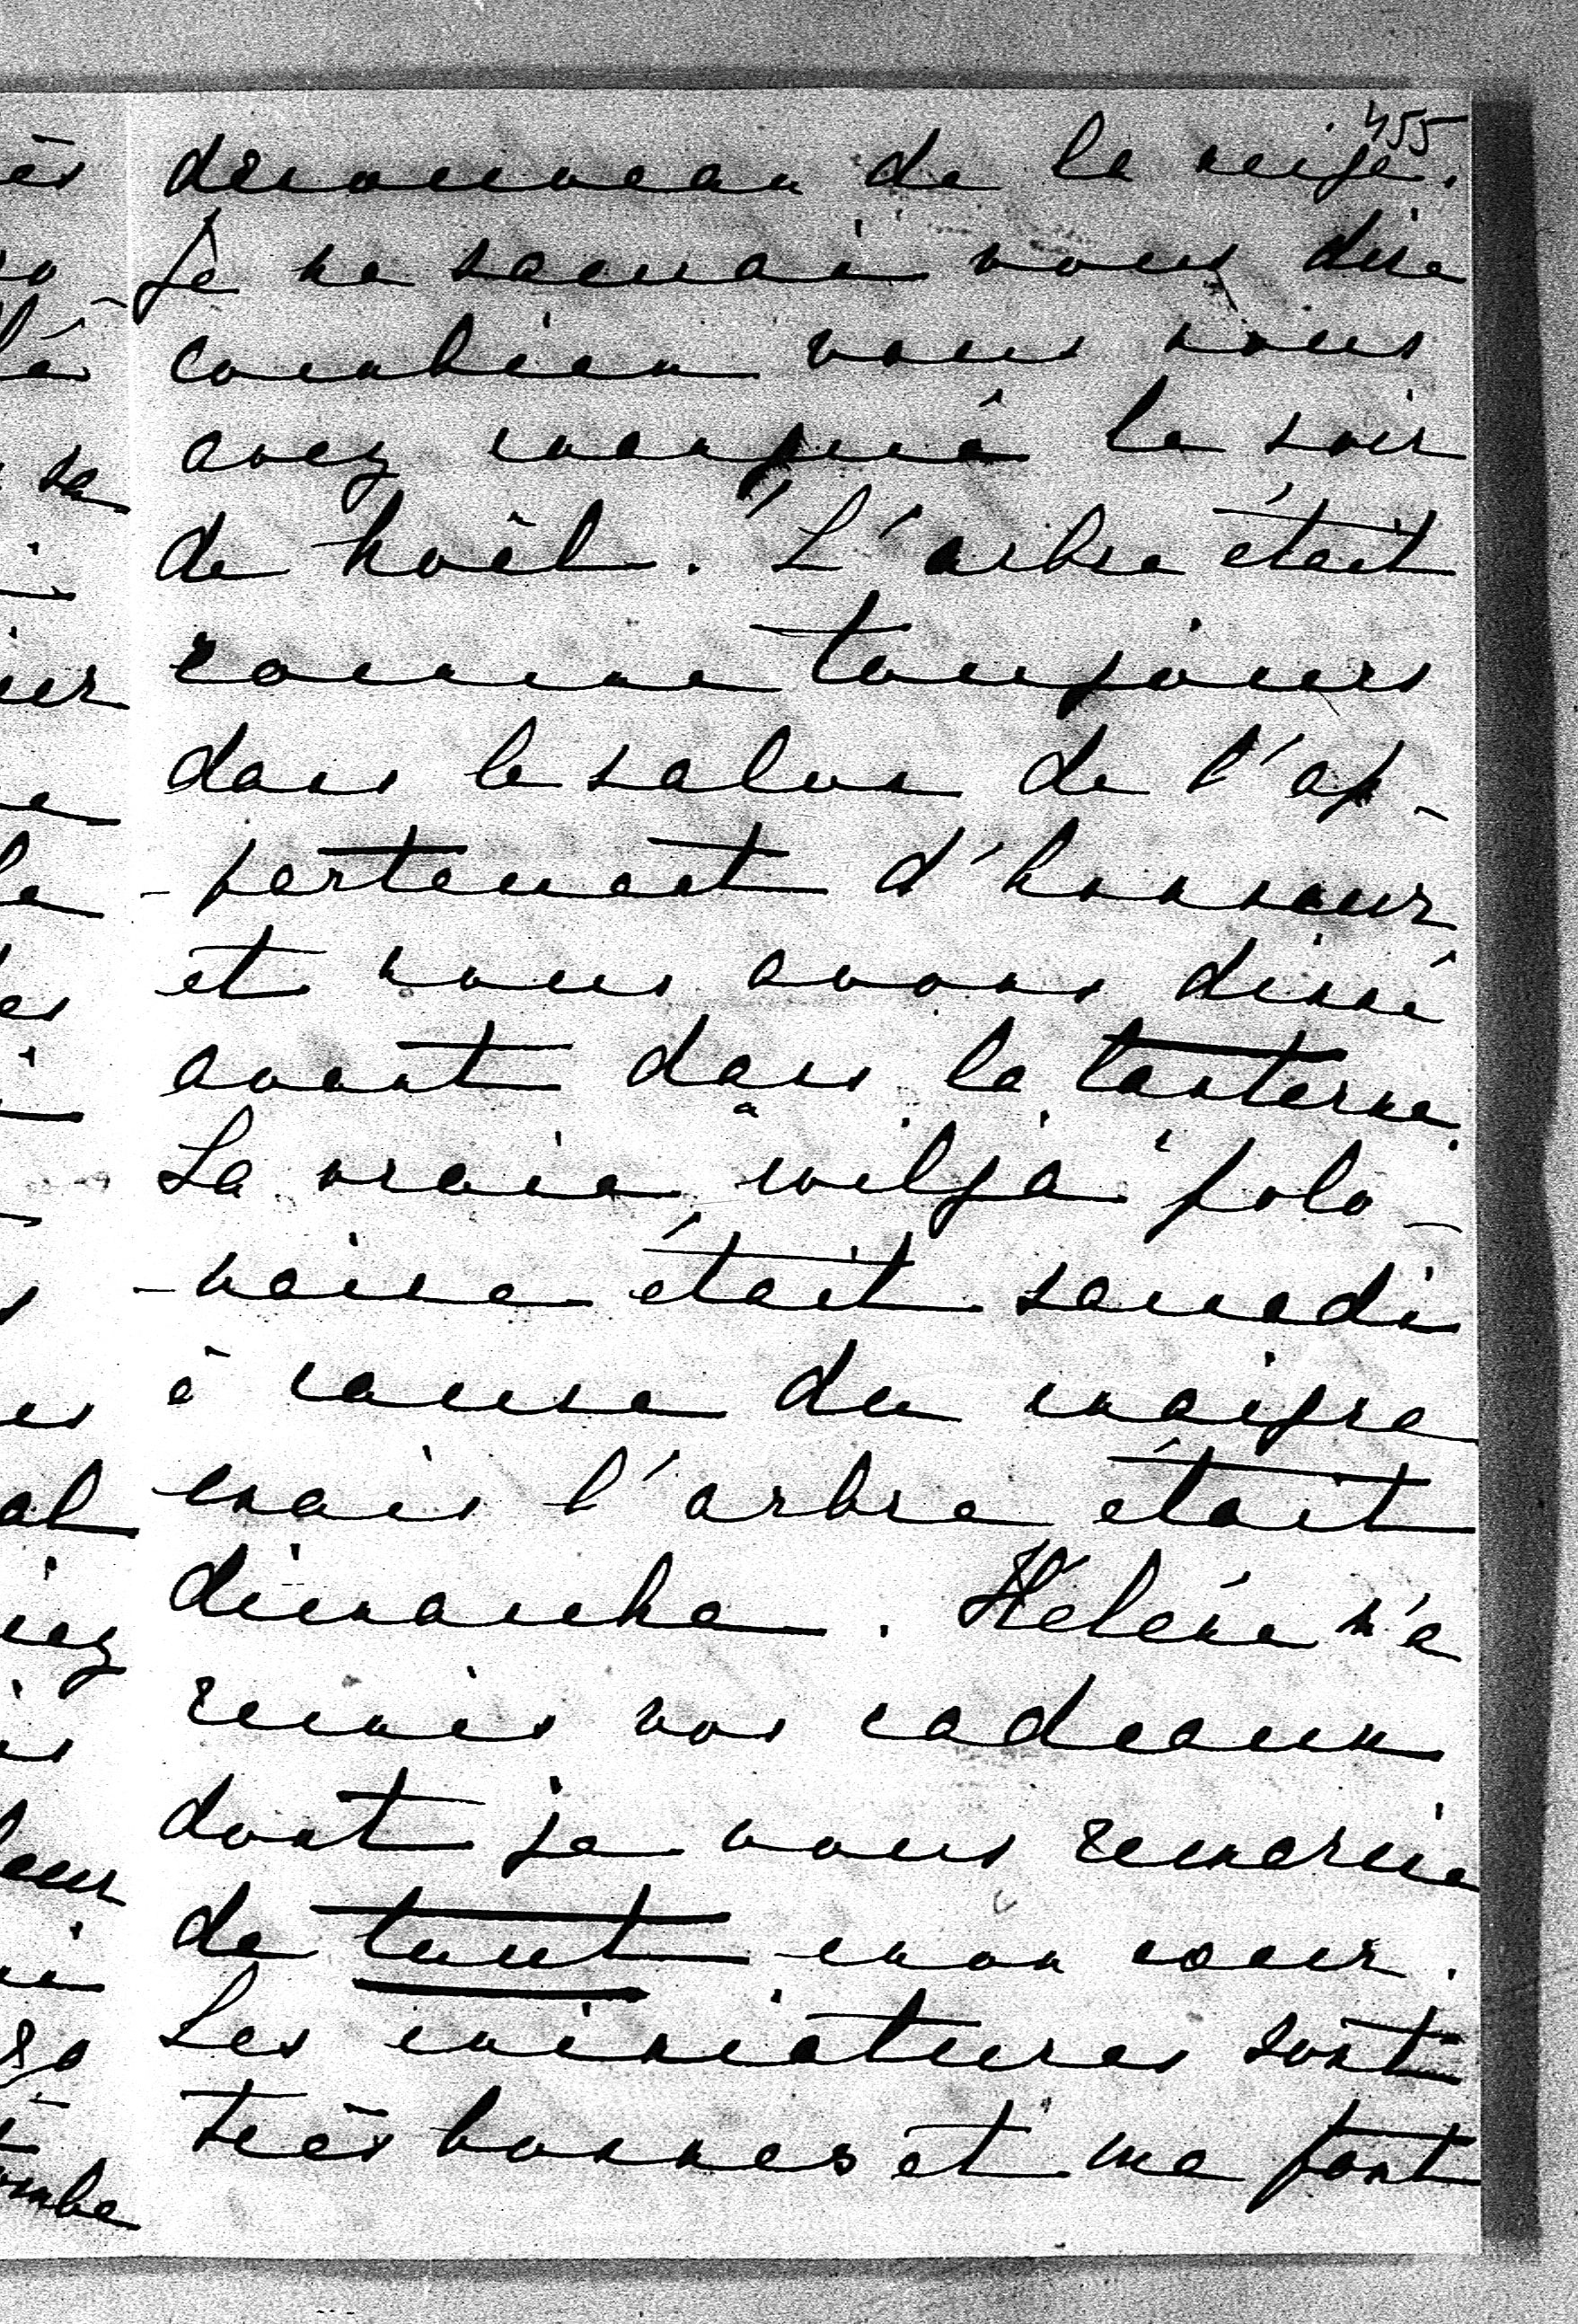 455
denouveau de la neige.
Je ne saurais vous dire
combien vous nous
avez manqué le soir
de Noël. L'arbre était
comme toujours
dans le salon de l'ap-
-partement d'honneur
et nous avons dîné
avant dans la lanterne.
La vraie "wilja" polo-
-naise était samedi
à cause du maigre
mais l'arbre était
dimanche. Hélène m'a
remis vos cadeaux
dont je vous remercie
de tout mon coeur.
Les miniatures sont
très bonnes et me font